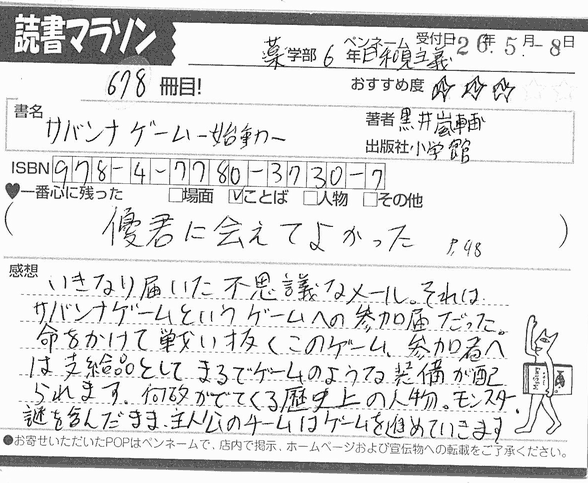 読書マラソン
薬学部 6年 ペンネーム 日和見主義 受付日 26年.5.月-8日
678冊目! おすすめ度 ☆☆☆
書名 サバンナゲームー始動ー
著者 黒井嵐輔
出版社 小学館
ISBN 978-4-7780-3730-7
♥一番心に残った □場面 ☑ことば □人物 □その他
(優君に会えてよかった P.48)
感想
いきなり届いた不思議なメール。それは
サバンナゲームというゲームへの参加届だった。
命をかけて戦い抜くこのゲーム、参加者へ
は支給品としてまるでゲームのような装備が配
られます。何故かでてくる歴史上の人物。モンスター。
謎を含んだまま、主人公のチームはゲームを進めていきます
●お寄せいただいたPOPはペンネームで、店内で掲示、ホームページおよび宣伝物への転載をご了承ください。